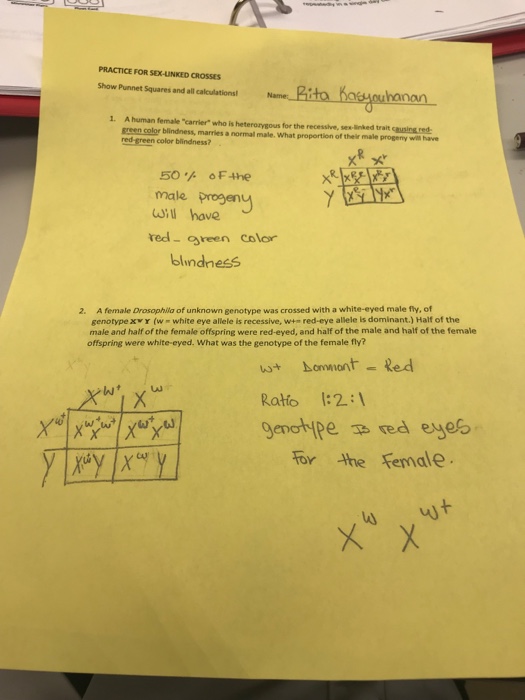 PRACTICE FOR SEX-LINKED CROSSES
Show Punnet Squares and all calculations!
Name: Rita Kasyouhanan
1. A human female "carrier" who is heterozygous for the recessive, sex-linked trait causing red-
green color blindness, marries a normal male. What proportion of their male progeny will have
red-green color blindness?
X^R X^r
X^R X^R X^R X^R X^r
Y X^R Y Y X^r
50 % of the
male progeny
will have
red-green color
blindness
2. A female Drosophila of unknown genotype was crossed with a white-eyed male fly, of
genotype X^w Y (w = white eye allele is recessive, w+= red-eye allele is dominant.) Half of the
male and half of the female offspring were red-eyed, and half of the male and half of the female
offspring were white-eyed. What was the genotype of the female fly?
w+ Dominant = Red
Ratio 1:2:1
genotype is red eyes
for the female.
X^w+ X^w
X^w+ X^w+ X^w+ X^w+ X^w
Y X^w Y X^w Y
X^w X^w+